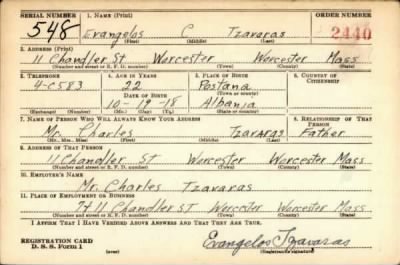 SERIAL NUMBER 1. NAME (Print) ORDER NUMBER
548 Evangelos C Tzavaras 2440
(First) (Middle) (Last)
2. ADDRESS (Print)
11 Chandler St Worcester Worcester Mass
(Number and street or R. F. D. number) (Town) (County) (State)
3. TELEPHONE 4. AGE IN YEARS 5. PLACE OF BIRTH 6. COUNTRY OF CITIZENSHIP
4-0583 22 Postana
DATE OF BIRTH
10-19-18 Albania
(Exchange) (Number) (Mo.) (Day) (Yr.) (State or country)
7. NAME OF PERSON WHO WILL ALWAYS KNOW YOUR ADDRESS 8. RELATIONSHIP OF THAT PERSON
Mr. Charles Tzavaras Father
(Mr., Mrs., Miss) (First) (Middle) (Last)
9. ADDRESS OF THAT PERSON
11 Chandler ST Worcester Worcester Mass
(Number and street or R. F. D. number) (Town) (County) (State)
10. EMPLOYER'S NAME
Mr. Charles Tzavaras
11. PLACE OF EMPLOYMENT OR BUSINESS
11 Chandler ST Worcester Worcester Mass
(Number and street or R. F. D. number) (Town) (County) (State)
I AFFIRM THAT I HAVE VERIFIED ABOVE ANSWERS AND THAT THEY ARE TRUE.
REGISTRATION CARD
D. S. S. Form 1 (over) Evangelos Tzavaras
(Registrant's signature)